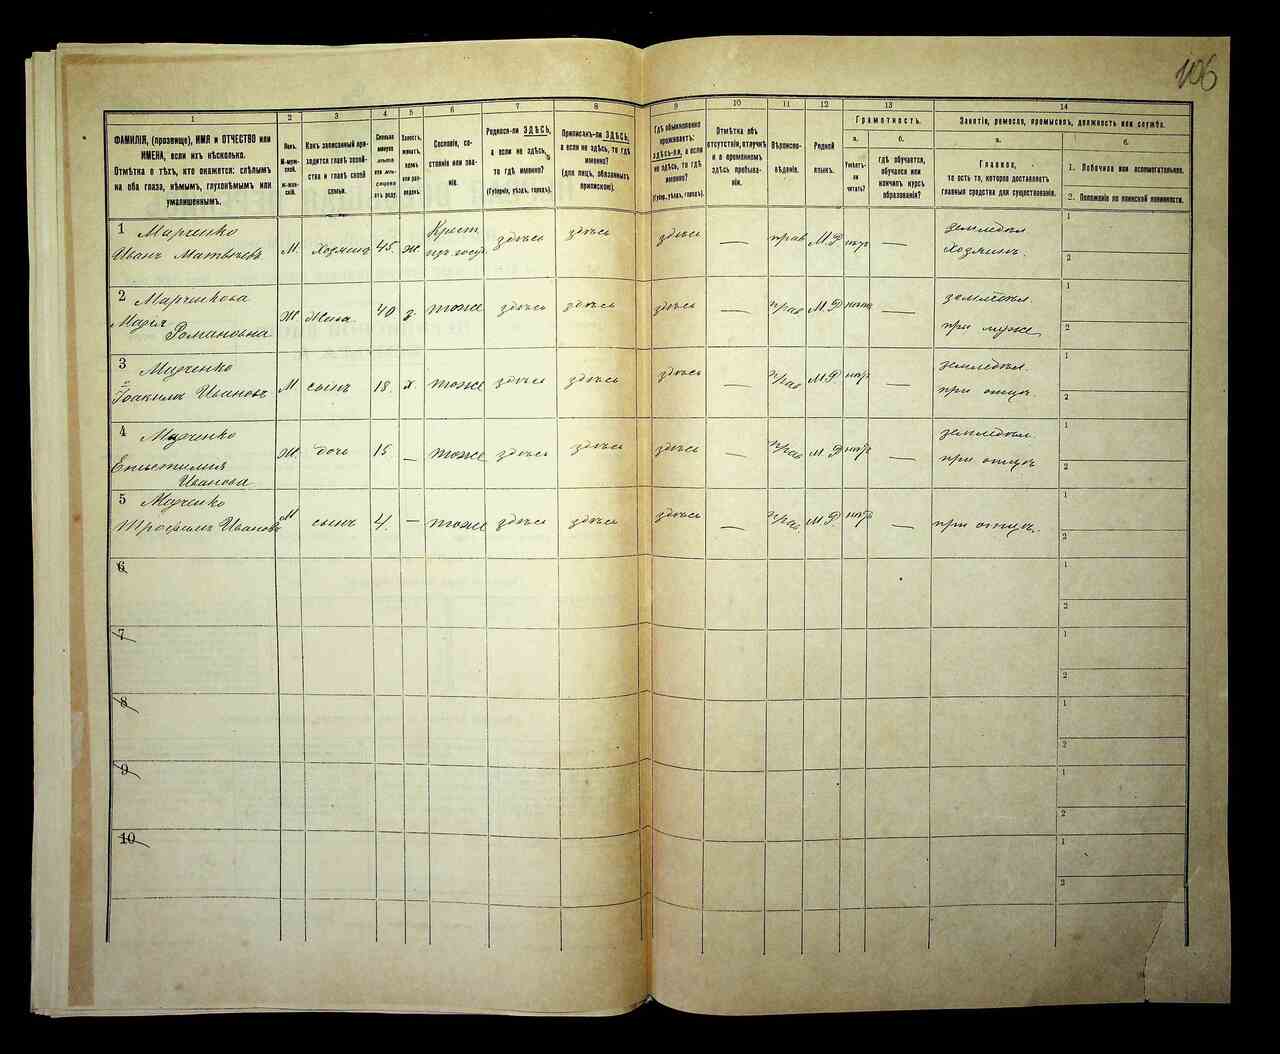 106
1
2
3
4
5
6
7
8
9
10
11
12
13
14
ФАМИЛІЯ, (прозвище), ИМЯ и ОТЧЕСТВО или
ИМЕНА, если ихъ нѣсколько.
Отмѣтка о тѣхъ, кто окажется: слѣпымъ
на оба глаза, нѣмымъ, глухонѣмымъ или
умалишеннымъ.
Полъ.
М-муж-
ской.
Ж-жен-
скій.
Какъ записанный при-
ходится главѣ хозяй-
ства и главѣ своей
семьи.
Сколько
минуло
лѣтъ
Холостъ,
женатъ,
вдовъ
Сословіе, со-
стояніе или зва-
ніе.
Родился-ли ЗДѢСЬ,
а если не здѣсь,
то гдѣ именно?
(Губернія, уѣздъ, городъ).
Приписанъ-ли ЗДѢСЬ,
а если не здѣсь, то гдѣ
именно?
(для лицъ, обязанныхъ
припискою).
Гдѣ обыкновенно
проживаетъ:
здѣсь-ли, а если
не здѣсь, то гдѣ
именно?
(Губер., уѣздъ, городъ).
Отмѣтка объ
отсутствіи, отлучкѣ
и о временномъ
здѣсь пребыва-
ніи.
Вѣроиспо-
вѣданіе.
Родной
языкъ.
Грамотность.
а.
Умѣетъ-
ли
читать?
б.
гдѣ обучается,
обучался или
кончилъ курсъ
образованія?
Занятіе, ремесло, промыселъ, должность или служба.
а.
Главное,
то есть то, которое доставляетъ
главныя средства для существованія.
б.
1. Побочное или вспомогательное.
2. Положеніе по воинской повинности.
1 Марченко
Иванъ Матвѣевъ М. Хозяинъ 45. ж Крест изъ госуд. здѣсь здѣсь здѣсь — прав М.Р — земледѣл Хозяинъ. 1 2
2 Марченкова
Марія Романовна Ж Жена. 40 з. тоже здѣсь здѣсь здѣсь — прав М.Р — земледѣл. при мужѣ 1 2
3 Марченко
Іоакимъ Ивановъ М сынъ 18. х. тоже здѣсь здѣсь здѣсь — прав М.Р — земледѣл. при отцѣ. 1 2
4 Марченко
Ж дочь 15 — тоже здѣсь здѣсь здѣсь — прав М.Р — земледѣл. при отцѣ 1 2
5 Марченко
Трофимъ Ивановъ М сынъ 4. — тоже здѣсь здѣсь здѣсь — прав. М.Р — при отцѣ. 1 2
6 1 2
7 1 2
8 1 2
9 1 2
10 1 2